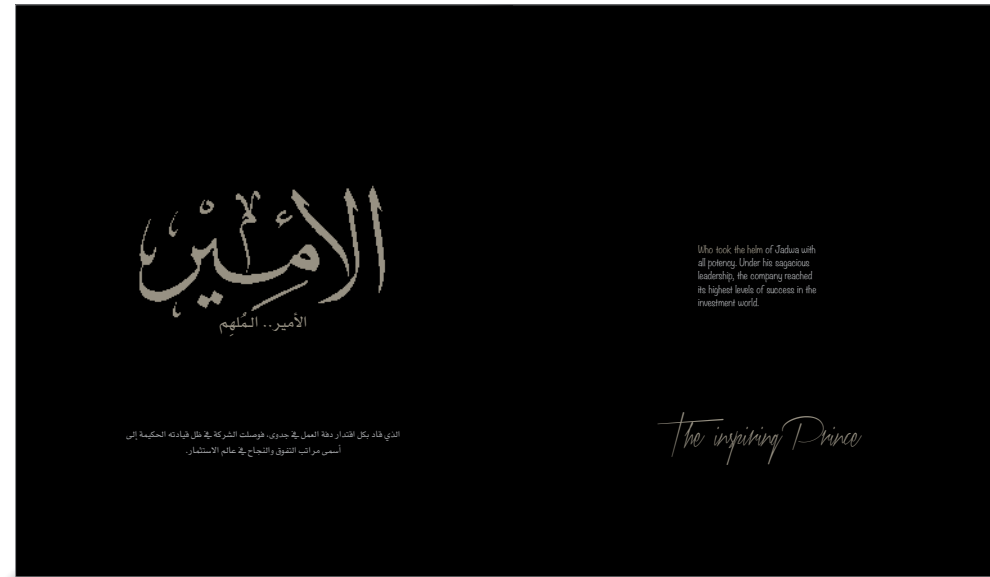 الأمير
الأمير.. المُلهِم
الذي قاد بكل اقتدار دفة العمل في جدوى، فوصلت الشركة في ظل قيادته الحكيمة إلى
أسمى مراتب التفوق والنجاح في عالم الاستثمار.
Who took the helm of Jadwa with
all potency. Under his sagacious
leadership, the company reached
its highest levels of success in the
investment world.
The inspiring Prince